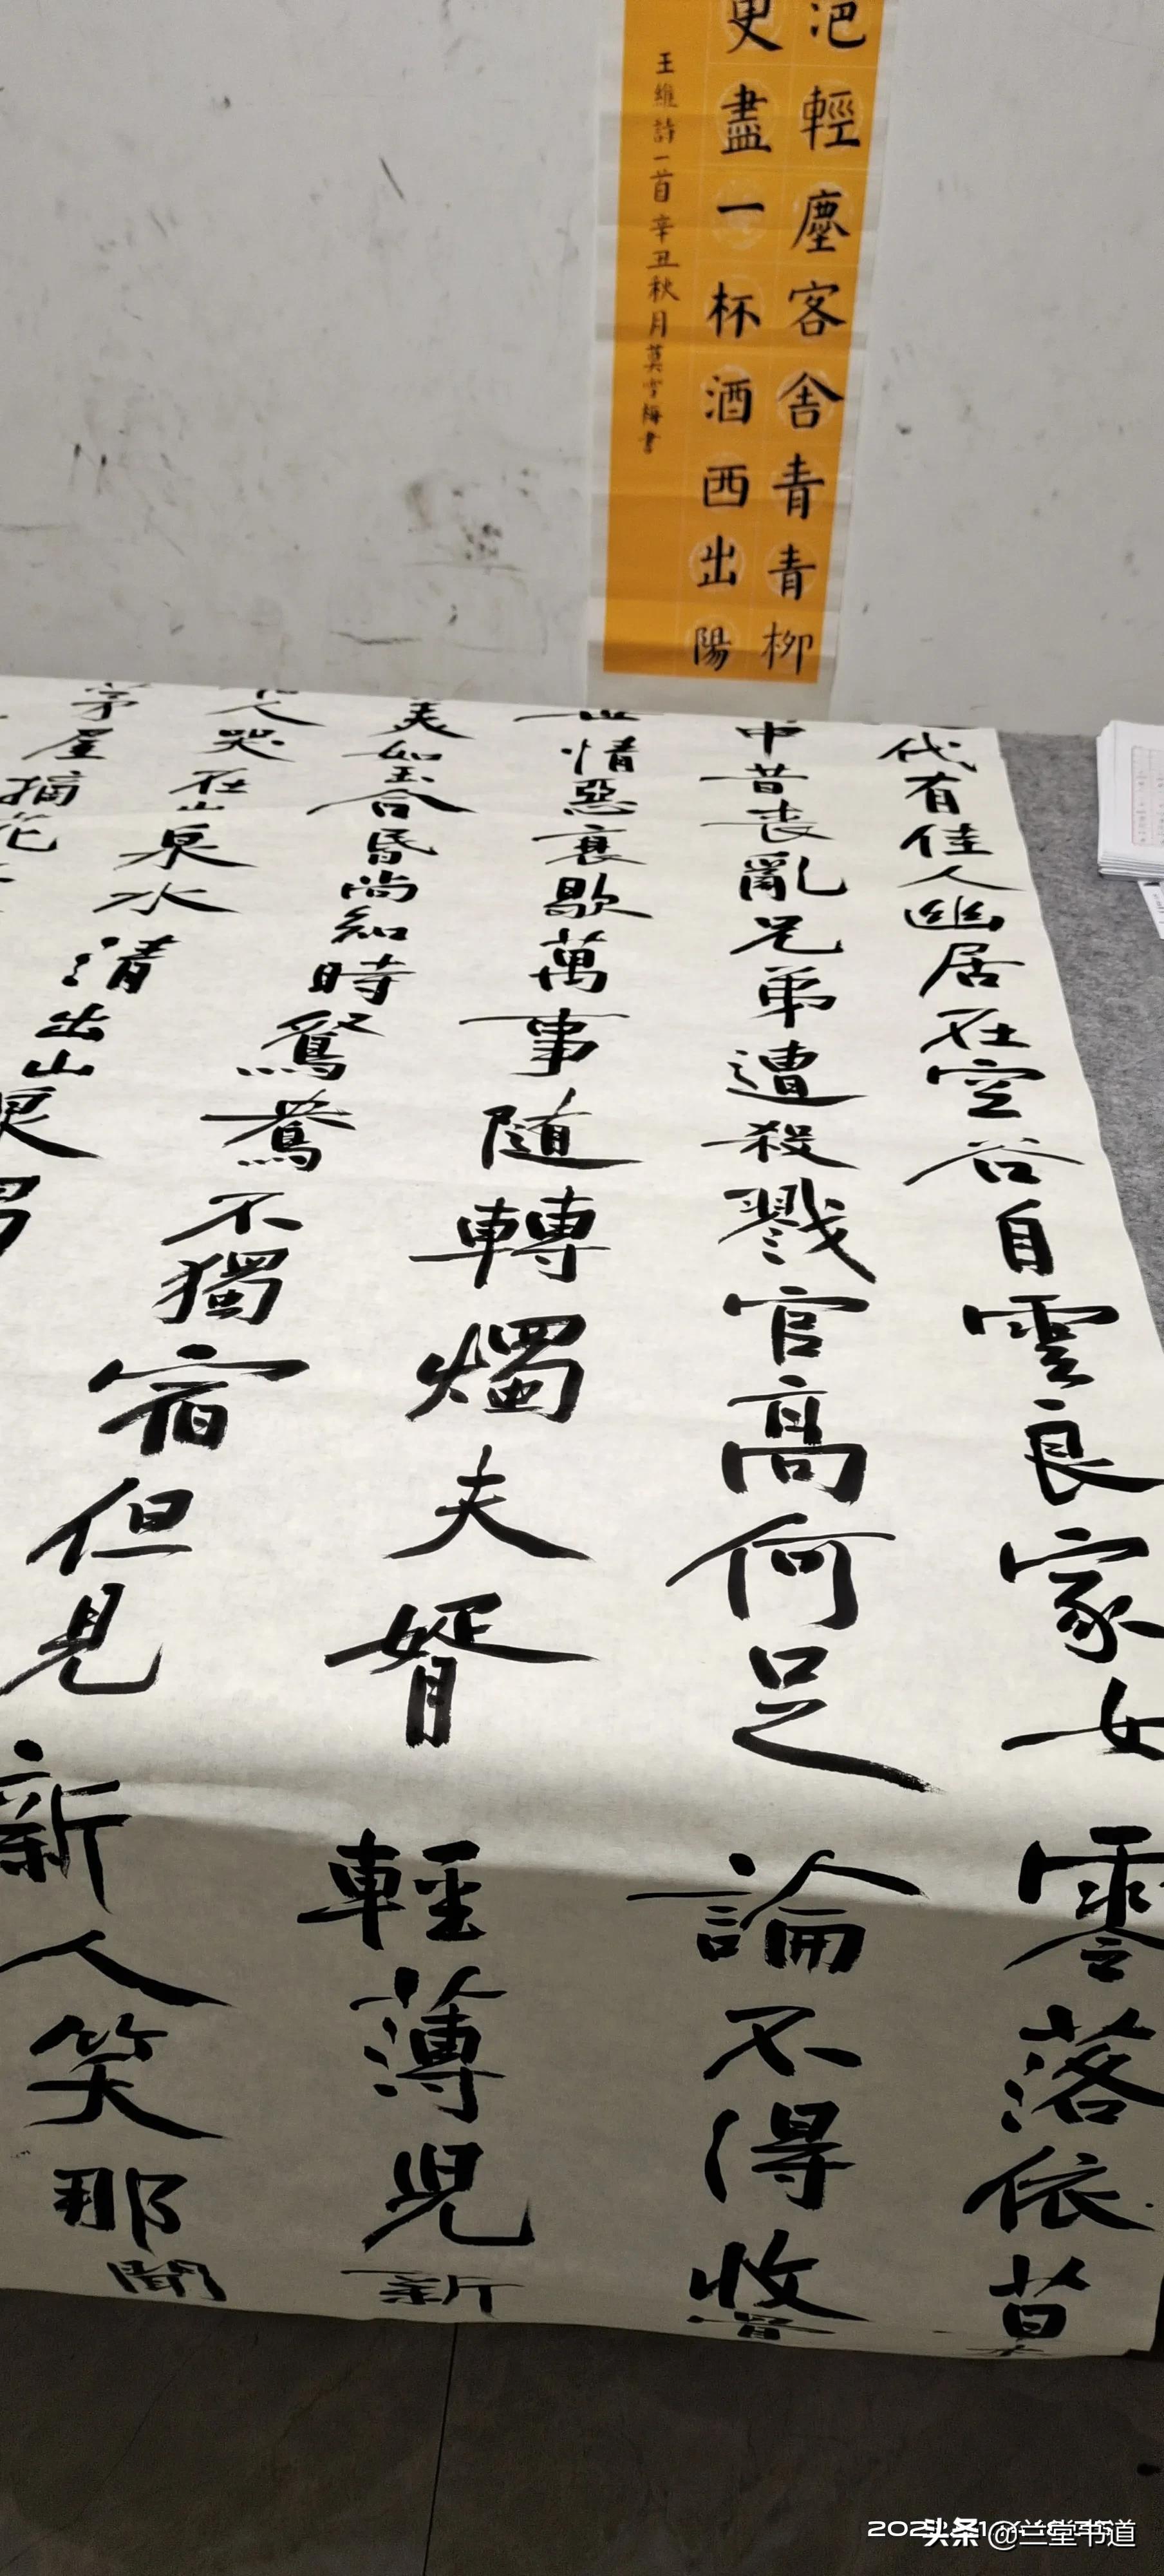 浥輕塵客舍青青柳
更盡一杯酒西出陽
王維詩一首辛丑秋月莫雪梅書
代有佳人幽居在空谷自雲良家女零落依草木
中昔喪亂兄弟遭殺戮官高何足論不得收骨
世情惡衰歇萬事隨轉燭夫婿輕薄兒新
美如玉合昏尚知時鴛鴦不獨宿但見新人笑那聞
人哭在山泉水清出山泉
茅屋摘花
头条@兰堂书道